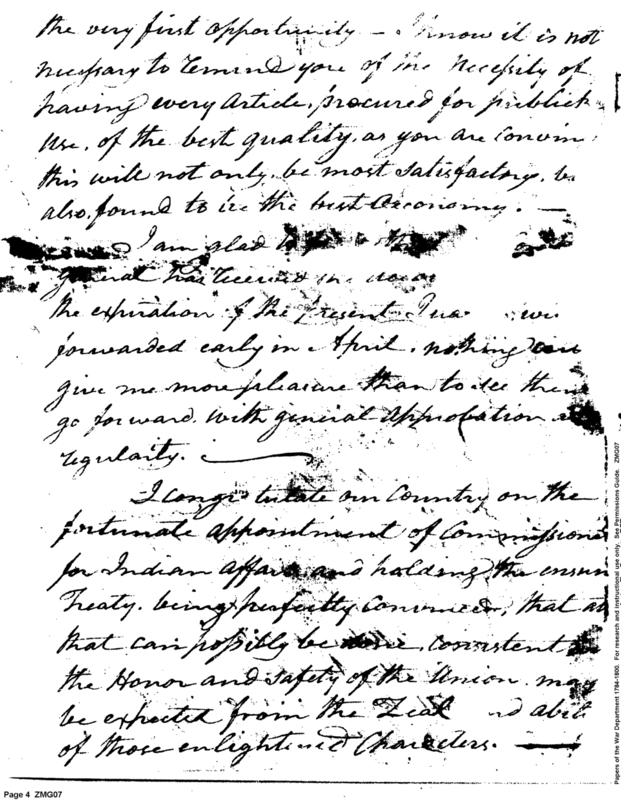 the very first opportunity — I know it is not
necessary to remind you of the necessity of
having every Article, procured for publick
use, of the best quality, as you are convin
this will not only, be most satisfactory, b
also, found to be the best Oeconomy. —
I am glad to
general has received the
the expiration of the present
forwarded early in April. nothing
give me more pleasure than to see them
go forward with general approbation
regularity.
I congratulate our Country on the
fortunate appointment of Commissione
for Indian Affairs and holding the ensuin
Treaty. being perfectly convinced, that al
that can possibly be done, consistent
the Honor and safety of the Union may
be expected from the Zeal and abili
of those enlightened Characters. —
Page 4 ZMG07
Papers of the War Department 1784-1800. For research and instructional use only. See Permissions Guide. ZMG07